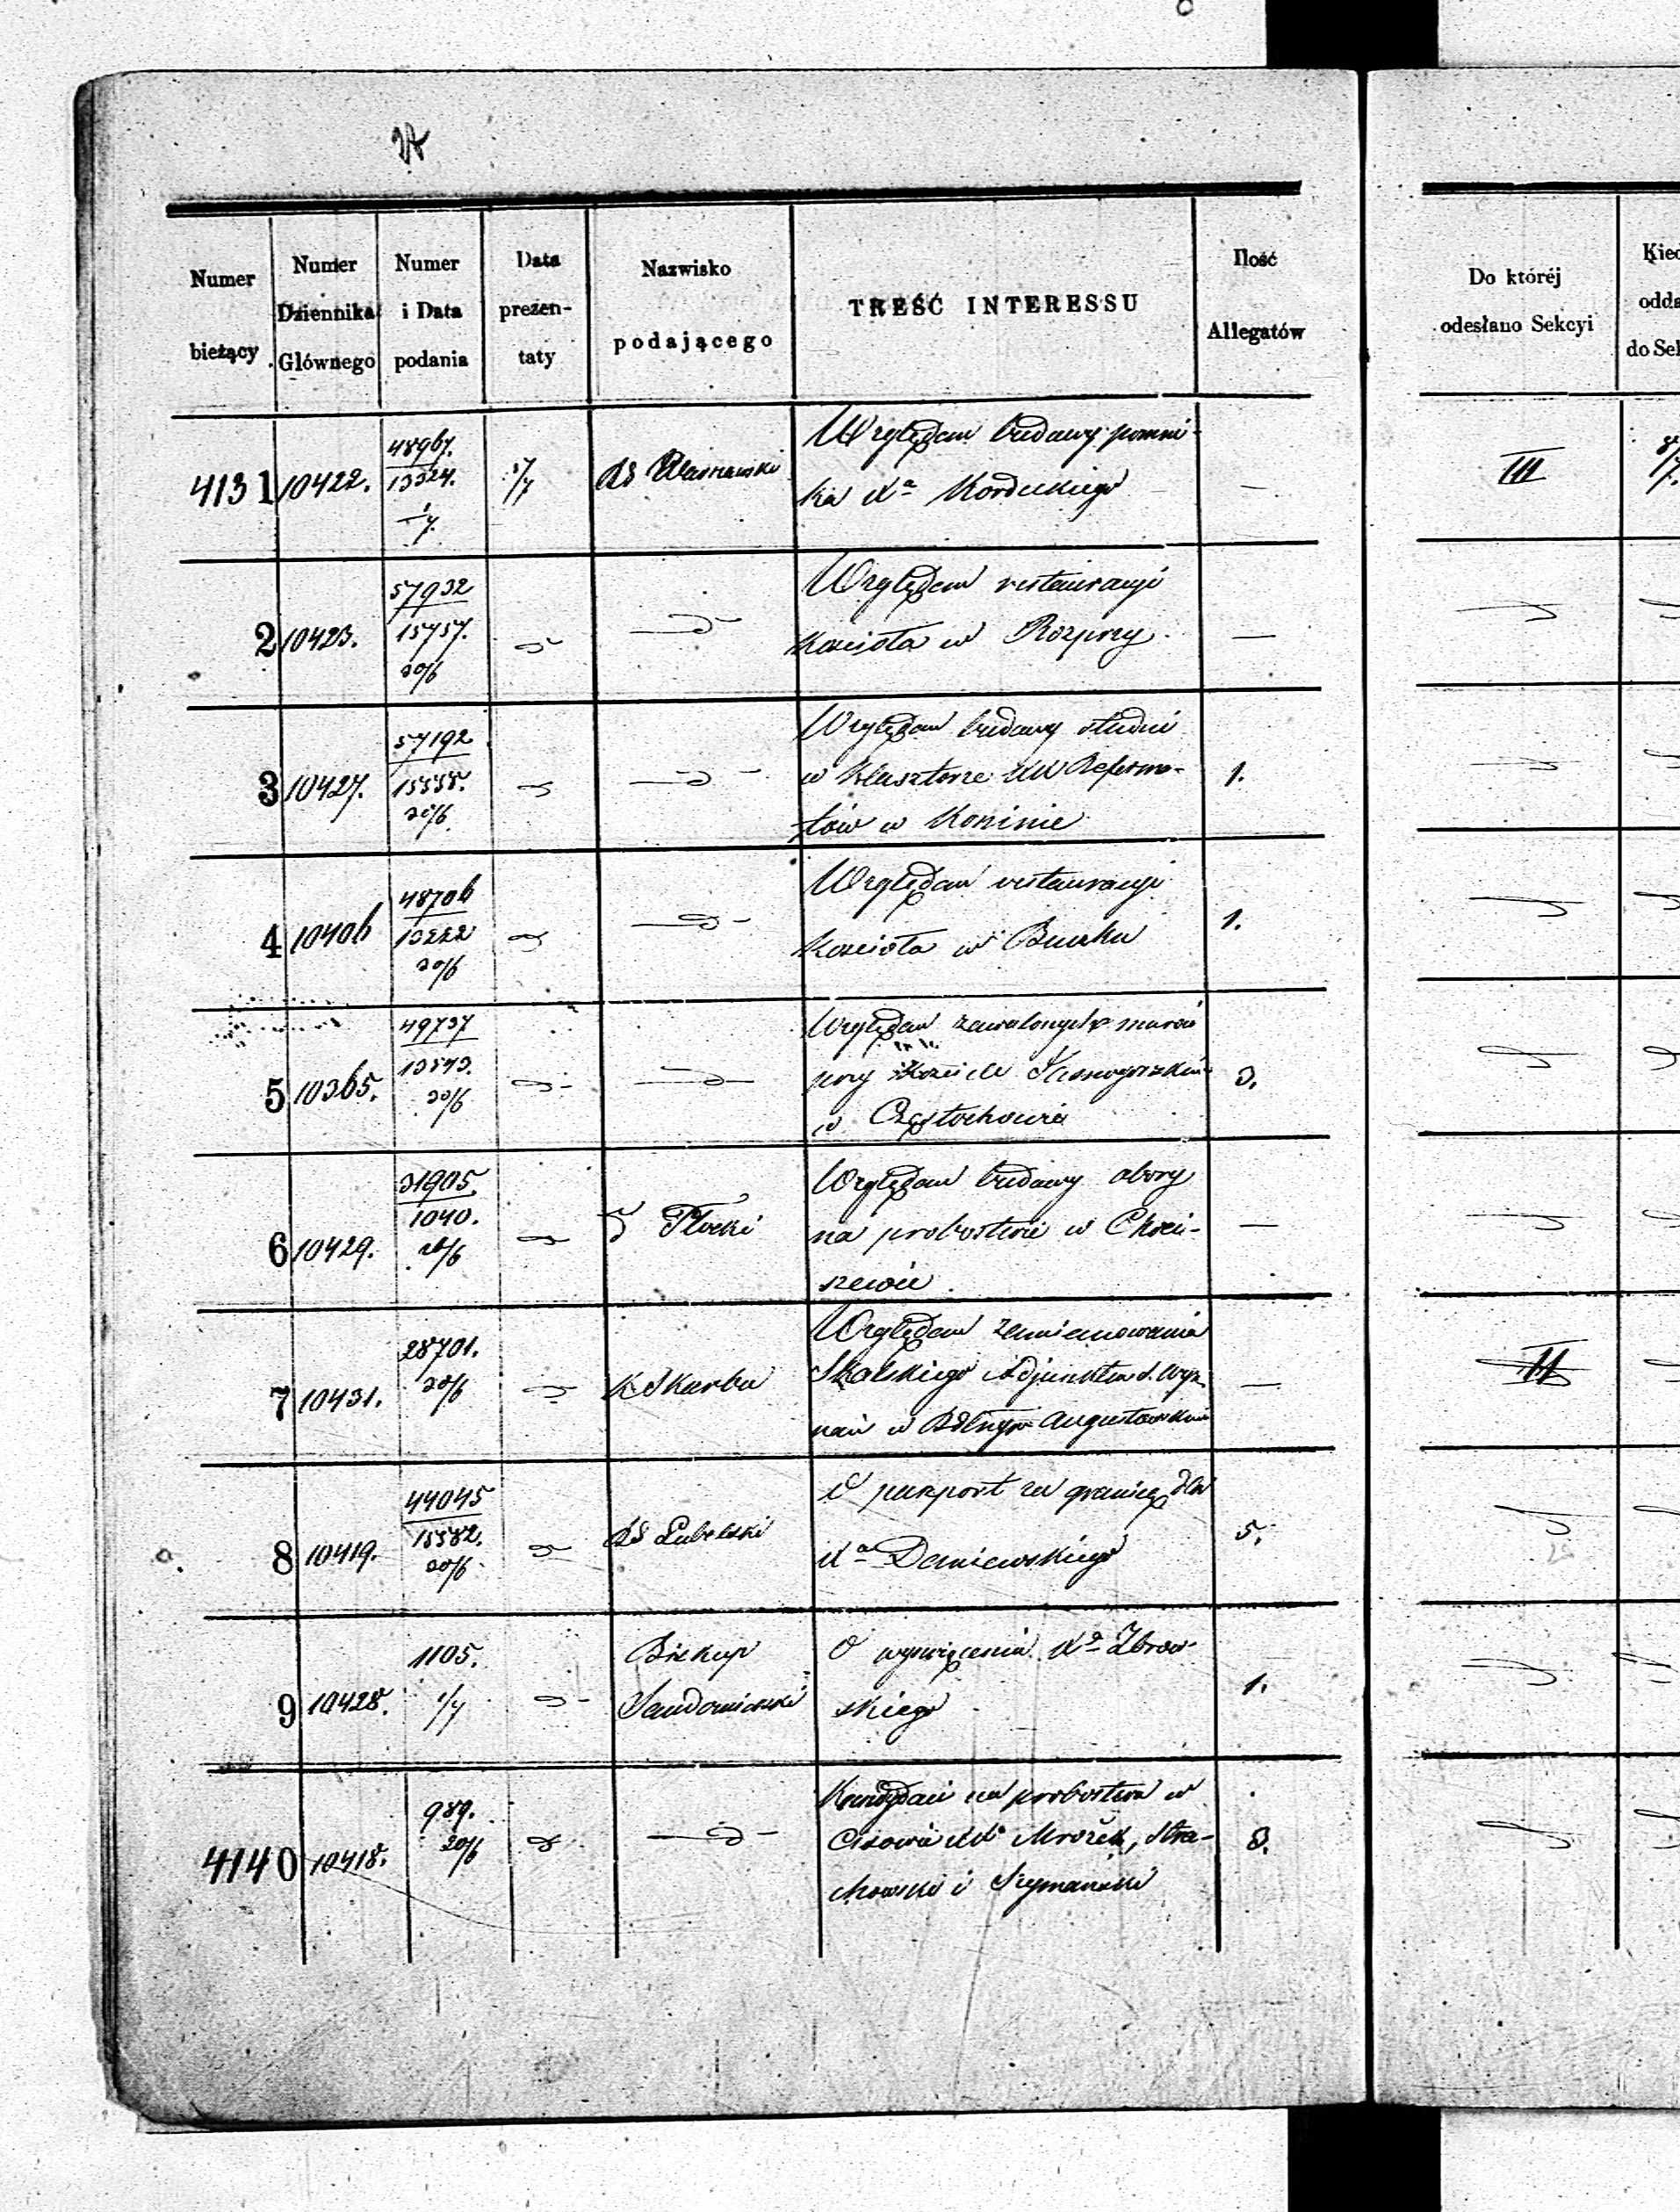 Numer bieżący
Numer Dziennika Głównego
Numer i Data podania
Data prezentaty
Nazwisko podającego
TREŚĆ INTERESSU
Ilość Allegatów
Do któréj odesłano Sekcyi
4131 10422. 48967. 13324. 1/7. 5/7 RG Warszawski
Względem budowy pomni-
ka Xa Kordeckiego —
III
2 10423. 57932 15757. 30/6
Względem restauracyi
Kościoła w Rozprzy. —
3 10427. 57192 15558. 30/6
Względem budowy studni
w Klasztorze XX Reforma- 1.
tów w Koninie
4 10406 48706 13222 30/6
Względem restauracyi 1.
Kościoła w Buczku
5 10365. 49737 13543. 30/6
Względem zawalonych murów
przy Kościele Jasnogórskim 3.
w Częstochowie
6 10429. 31905 1040. 26/6 Płocki
Względem budowy obory
na probostwie w Choci- —
szewie
7 10431. 28701. 30/6 K Skarbu
Względem zamianowania
Skalskiego Adjunktem d. Wyz- —
nań w Augustowskim
II
8 10419. 44045 15582. 30/6 RG Lubelski
O paszport za granicę dla
Xa Daniewskiego 5.
9 10428. 1105. 1/7 Biskup Sandomierski
O wyświęcenia Xa Zbrow-
skiego 1.
4140 10418. 989. 30/6
Kandydaci na probostwa w
Cisowie XX Mrożek, Stra- 3.
chowski i Szymański